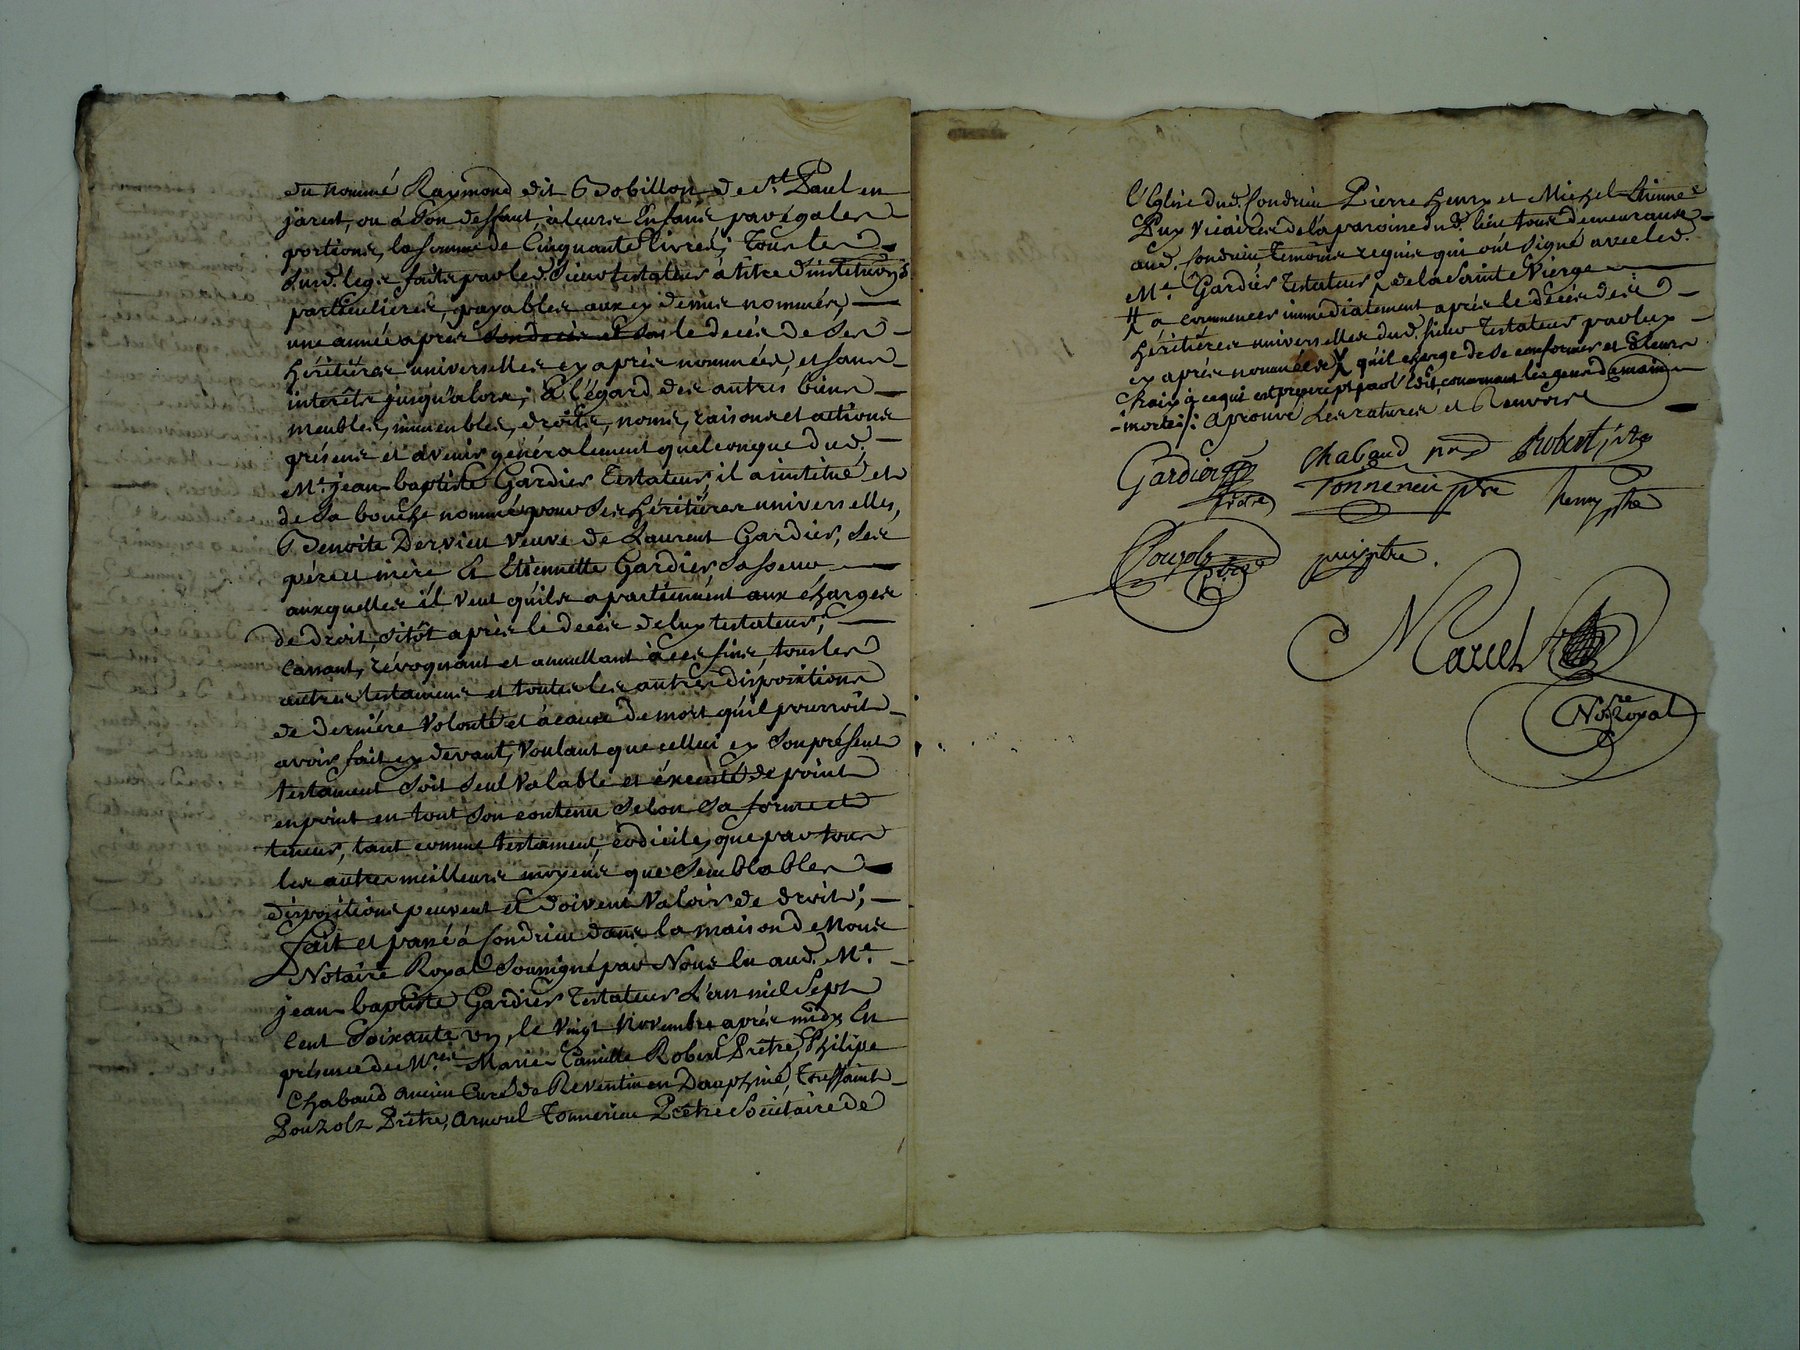 du nommé Raymond dit Bobillon de St. Paul en
jarest, ou á Son deffaut, à leurs Enfans par égales
portions, la somme de Cinquante livres; Tous les
Susd. legs faits par led. Sieur testateur á titre d'institu͠ons
particulieres, payables aux cy devans nommés,
une année après son decés et sas le decés de Ses
héritiéres universelles cy après nommées, et sans
interêts jusqu'alors; Et l'égard des autres biens
meubles, immeubles, droits, noms, raisons et actions
présens et avenir généralement quelconque dud.
Me. jean-baptiste Gardier Testateur il a institué et
de Sa bouche nommé pour Ses héritiéres universelles,
Benoite Dervieu veuve de Laurent Gardier, Ses
pére et mére & Etiennette Gardier Sa soeur
auxquelles il veut qu'ils apartiennent aux charges
de droit, sitôt après le decés de luy testateur,
Cassant, révoquant et annullant à ces fins, tous les
autres testamens et toutes les autres dispositions
de derniére Volonté et à cause de mort qu'il pourroit
avoir fait cy devant, Voulant que celluï cy Son présent
testament Soit Seul Valable et éxecuté de point
en point en tout Son contenu Selon Sa forme et
teneur, tant comme testament, codicile, que par tous
les autres meilleurs moyens que Semblables
dispositions peuvent et doivent Valoir de droit;
fait et passé á Condrieu dans la maison de Nous
Notaire Royal Soussigné par Nous lu aud. Me.
jean-baptiste Gardier Testateur L'an mil Sept
Cent Soixante un, le Vingt Novembre après midy En
présence de Mres. Marie-Camille Robert Prêtre, Philipe
Chabaud ancien Curé de Reventin en Dauphiné, Toussaint
Pouzolz Prêtre, Arnoul Tonnerieu Prêtre Sociétaire de
l'Eglise dud. Condrieu Pierre henry et Michel Etienne
Puy Vicaires de la paroisse dud. lieu tous demeurans
aud. Condrieu temoins requis qui ont signé avec led.
Me. Gardier Testateur de la Sainte Vierge
# a commencer immédiatement après le décés des
héritiéres universelles dud. sieur Testateur par lux
cy après nommées X qu'il charge de Se conformer et à leurs
choix à ce qui est prescript par l'édit concernant les gens de main
-morte/: aprouvé Les ratures et Renvois
Gardier
Chabaud
Robert ptre
ptre
Tonnerieu ptre
henry ptre
Pouzolz
ptre
puis ptre.
Marcel
Nore. Royal